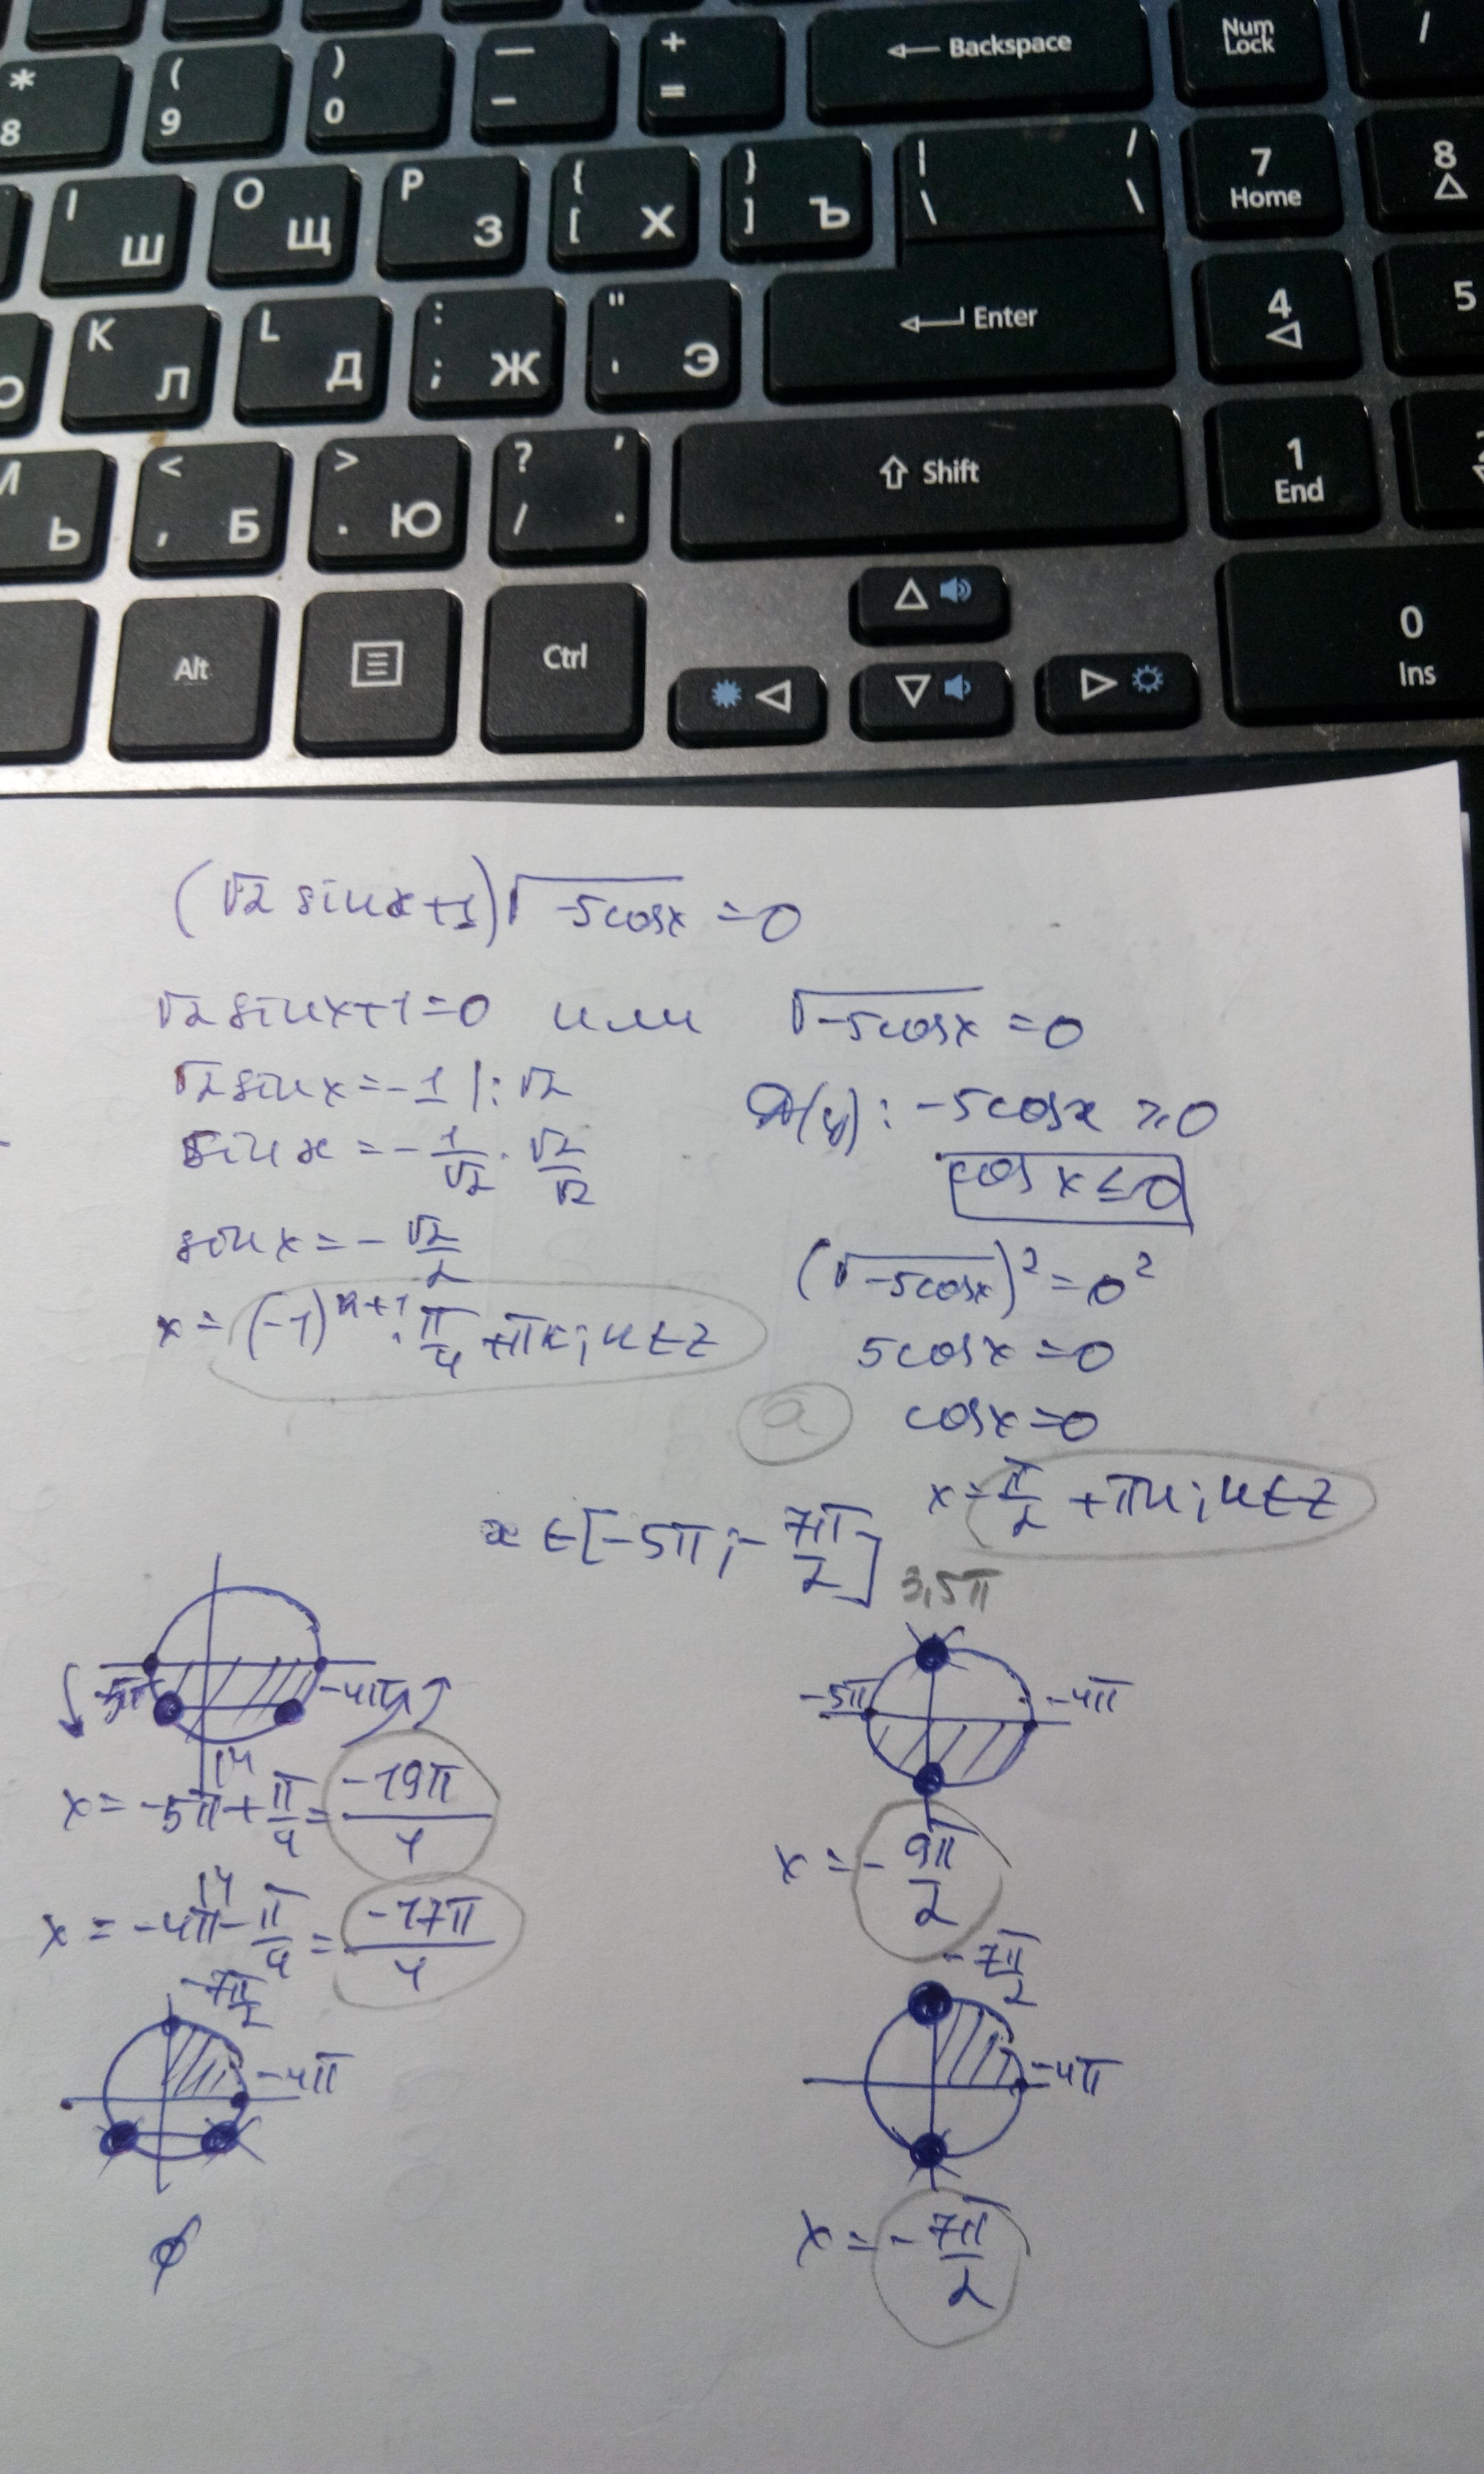 * 8 ( 9 ) 0 — - + = ← Backspace Num Lock /
I Ш O Щ P З { [ Х } ] Ъ | \ / \ 7 Home 8
K Л L Д : ; Ж " ' Э Enter 4 5
Ь < , Б > . Ю ? / , . Shift 1 End
Alt Ctrl 0 Ins
(√2 sinx+1)√-5cosx = 0
√2 sinx+1=0 или √-5cosx = 0
√2 sinx = -1 |: √2
D(y): -5cosx ≥ 0
sinx = -1/√2 · √2/√2
cosx ≤ 0
sinx = -√2/2
(√-5cosx)² = 0²
x = (-1)ⁿ⁺¹ · π/4 + πn; n∈Z
5cosx = 0
а
cosx = 0
x = π/2 + πn; n∈Z
x ∈ [-5π; -7π/2]
3,5π
-5π -4π
-5π -4π
x = -5π + π/4 = -19π/4
x = -9π/2
x = -4π - π/4 = -17π/4
-7π/2
-4π
-7π/2
-4π
∅
x = -7π/2